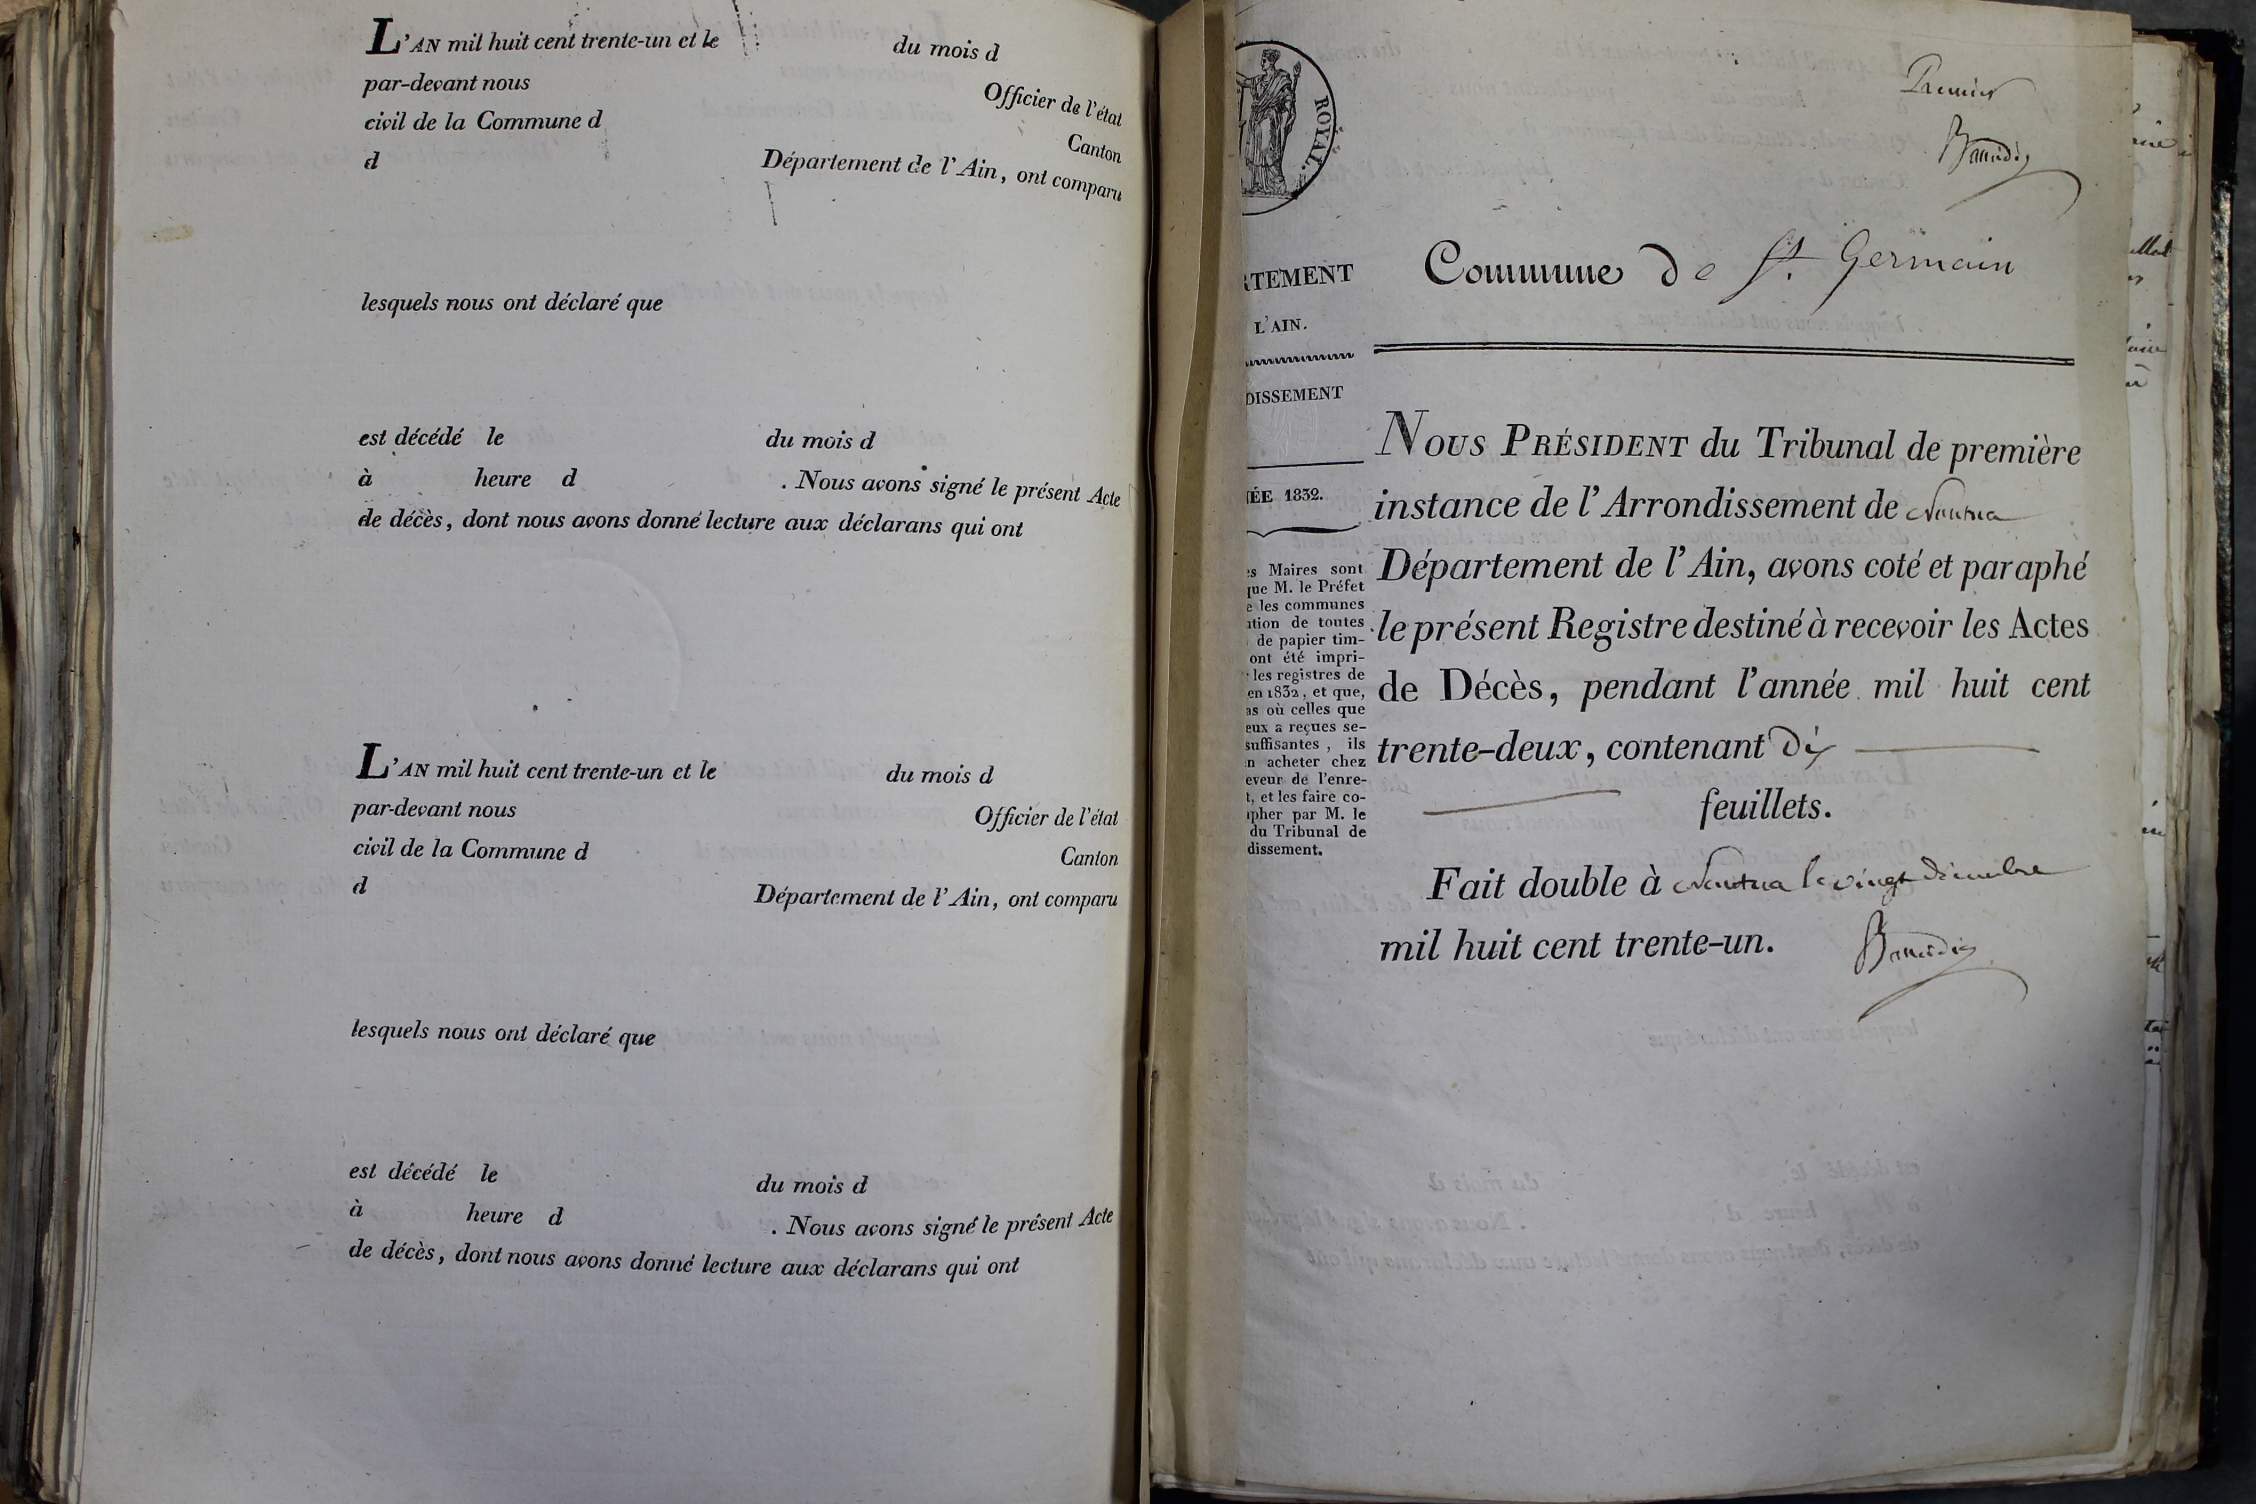 L'AN mil huit cent trente-un et le du mois d
par-devant nous Officier de l'état
civil de la Commune d Canton
d Département de l'Ain, ont comparu
lesquels nous ont déclaré que
est décédé le du mois d
à heure d . Nous avons signé le présent Acte
de décès, dont nous avons donné lecture aux déclarans qui ont
L'AN mil huit cent trente-un et le du mois d
par-devant nous Officier de l'état
civil de la Commune d Canton
d Département de l'Ain, ont comparu
lesquels nous ont déclaré que
est décédé le du mois d
à heure d . Nous avons signé le présent Acte
de décès, dont nous avons donné lecture aux déclarans qui ont
ROYAL.
Premier
RTEMENT
L'AIN.
DISSEMENT
ÉE 1832.
es Maires sont
que M. le Préfet
e les communes
ation de toutes
de papier tim-
ont été impri-
les registres de
en 1832, et que,
as où celles que
eux a reçues se-
suffisantes, ils
n acheter chez
eveur de l'enre-
t, et les faire co-
apher par M. le
du Tribunal de
dissement.
Commune de St. Germain
NOUS PRÉSIDENT du Tribunal de première
instance de l'Arrondissement de Nantua
Département de l'Ain, avons coté et paraphé
le présent Registre destiné à recevoir les Actes
de Décès, pendant l'année mil huit cent
trente-deux, contenant Dix
feuillets.
Fait double à Nantua le vingt Décembre
mil huit cent trente-un.